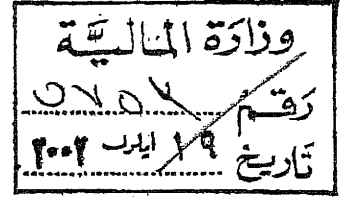 وزارة المالية
رقم
تاريخ ١٩ ايلول ٢٠٠٢